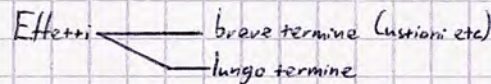 Effetti breve termine (ustioni etc)
lungo termine